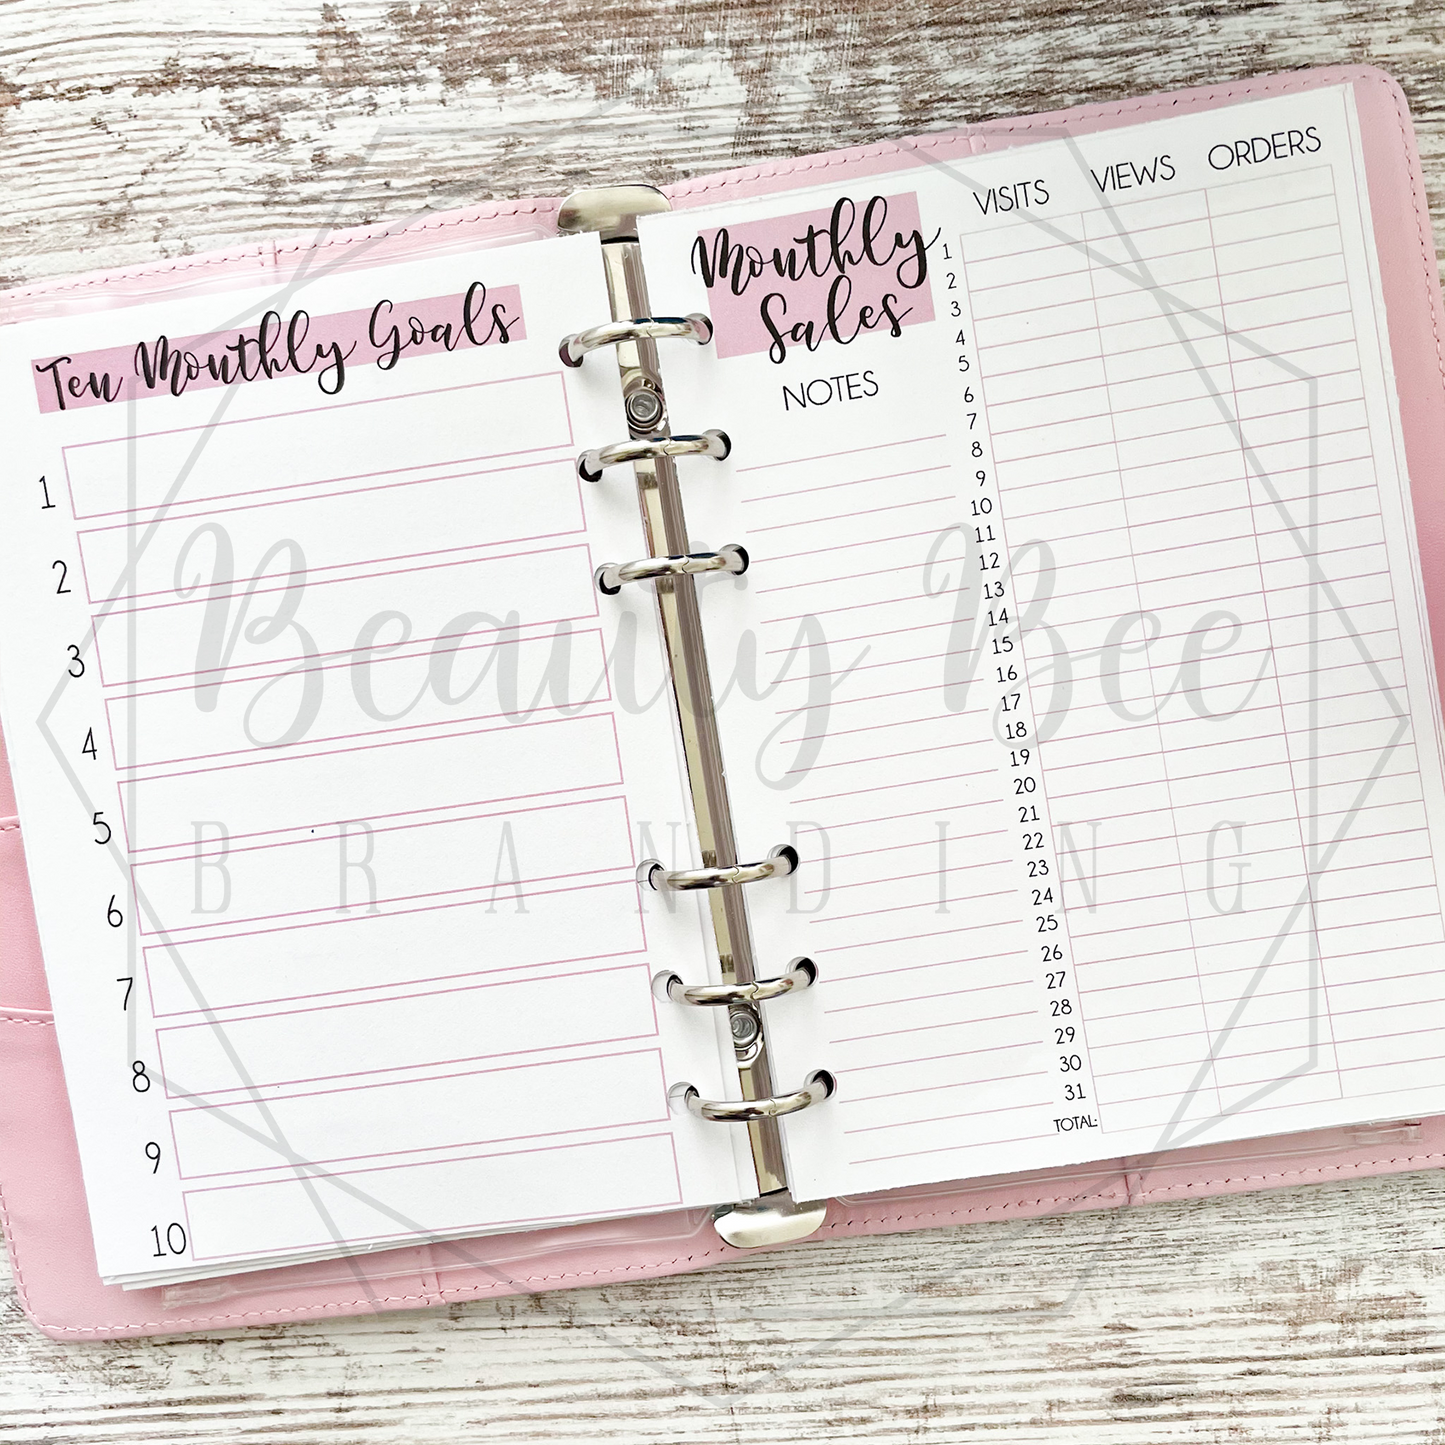 Ten Monthly Goals
1
2
3
4
5
6
7
8
9
10
Monthly
Sales
NOTES
VISITS VIEWS ORDERS
1
2
3
4
5
6
7
8
9
10
11
12
13
14
15
16
17
18
19
20
21
22
23
24
25
26
27
28
29
30
31
TOTAL:
Beauty Bee
BRANDING